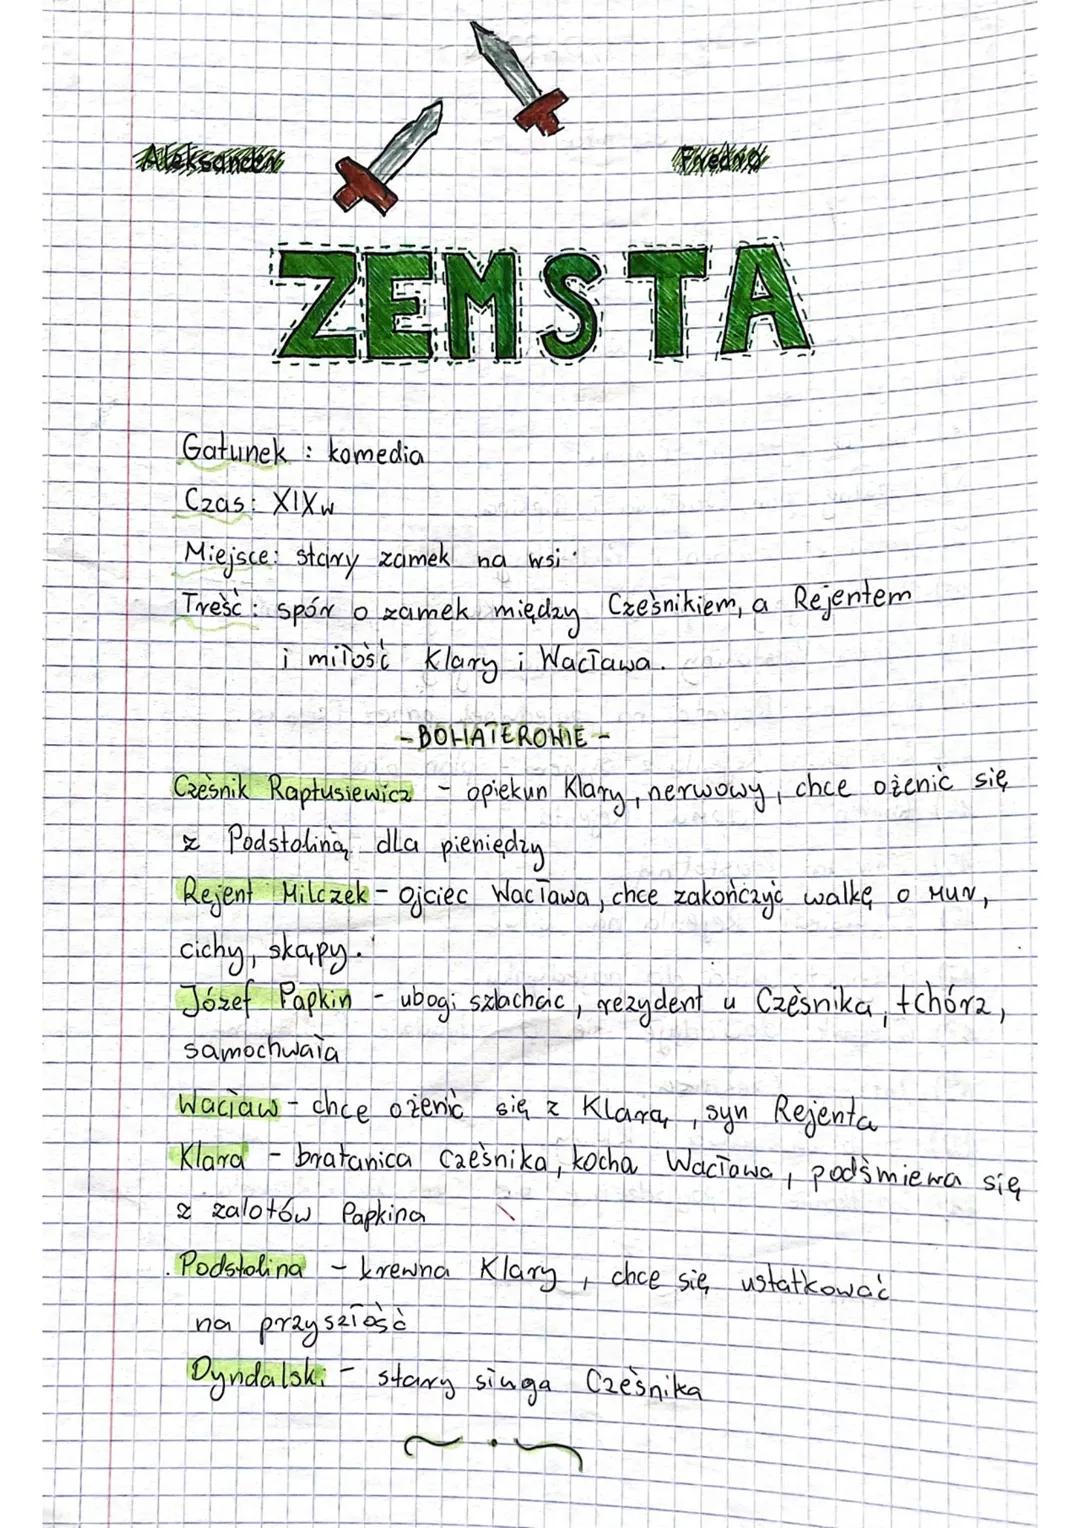 Aleksander Fredro
ZEMSTA
Gatunek : komedia
Czas: XIXw
Miejsce: stary zamek na wsi
Treść: spór o zamek między Cześnikiem, a Rejentem
i miłość Klary i Wacława.
-BOHATEROWIE-
Cześnik Raptusiewicz - opiekun Klary, nerwowy, chce ożenić się
z Podstoliną dla pieniędzy
Rejent Milczek - ojciec Wacława, chce zakończyć walkę o mur,
cichy, skąpy.
Józef Papkin - ubogi szlachcic, rezydent u Cześnika, tchórz,
samochwała
Wacław - chce ożenić się z Klarą, syn Rejenta
Klara - bratanica Cześnika, kocha Wacława, podśmiewa się
z zalotów Papkina
Podstolina - krewna Klary, chce się ustatkować
na przyszłość
Dyndalski - stary sługa Cześnika